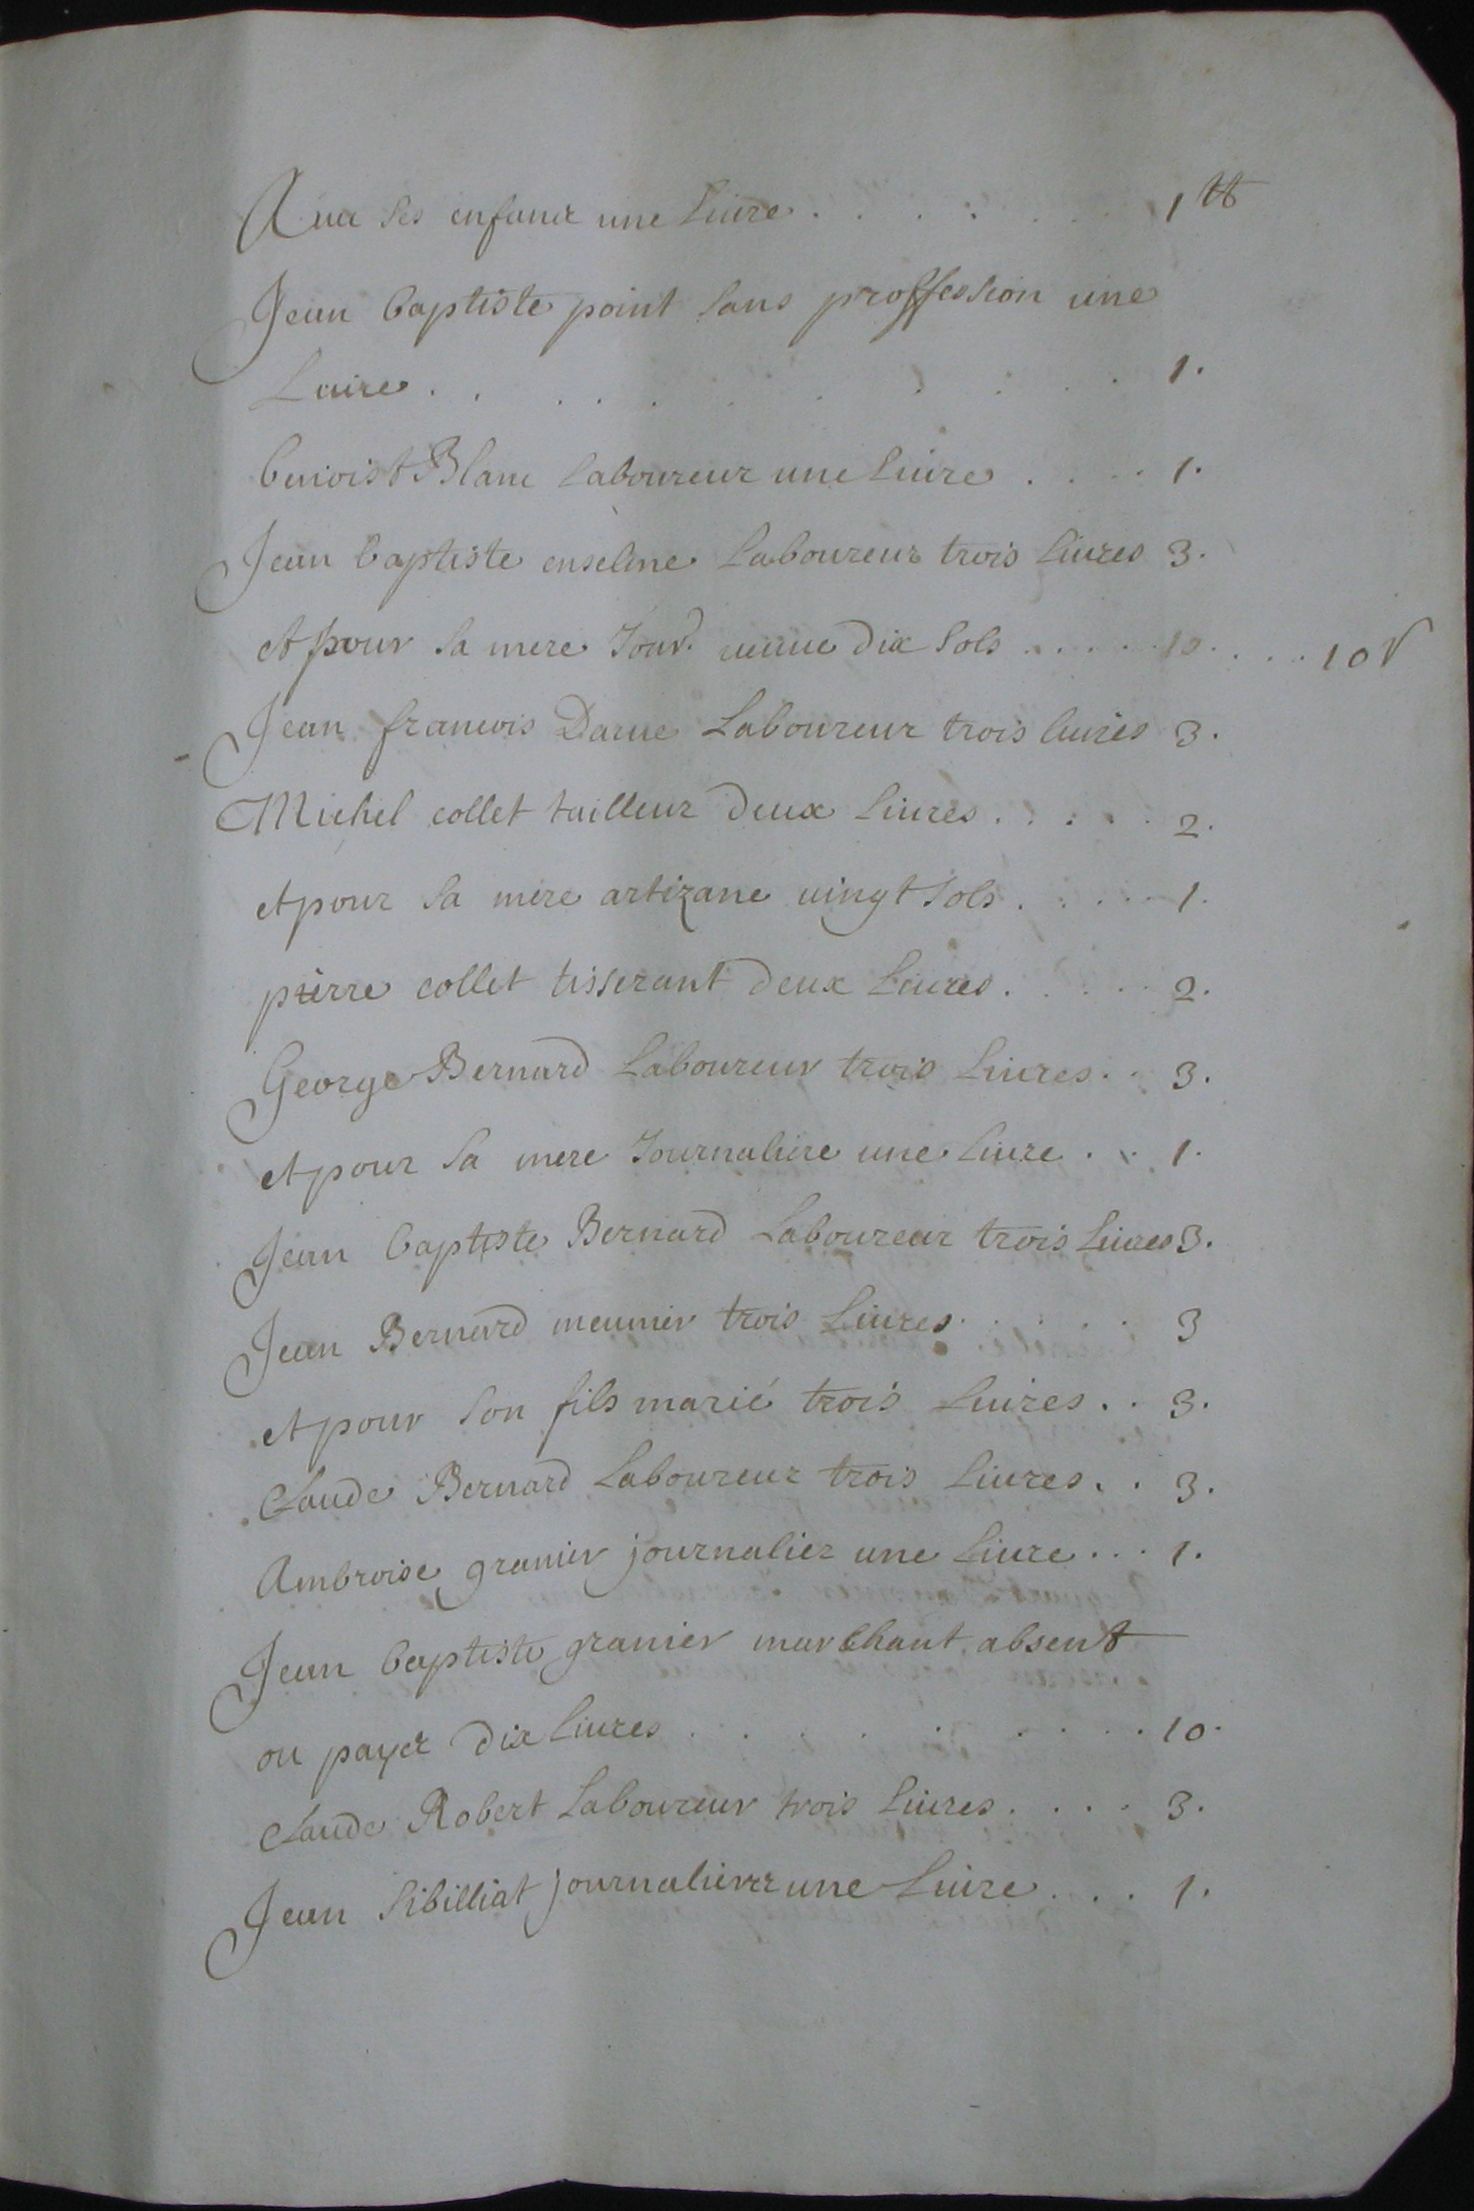 Aux ses enfans une livre . . . . . 1 lt
Jean Baptiste point sans proffession une
Livre . . . . . . . . 1.
benoist Blanc laboureur une livre . . . . 1.
Jean Baptiste enselme Laboureur trois livres 3.
et pour sa mere Jour. veuve dix sols . . . . . 10. . . . 10 s
Jean francois Darve Laboureur trois livres 3.
Michel collet tailleur deux livres . . . . . 2.
et pour sa mere artizane vingt sols . . . . . 1.
pierre collet tisserant deux livres . . . . . 2.
George Bernard Laboureur trois Livres . . 3.
et pour sa mere Journaliere une livre . . 1.
Jean baptiste Bernard Laboureur trois Livres 3.
Jean Bernard meunier trois Livres . . . . . 3
et pour son fils marié trois livres . . 3.
Claude Bernard Laboureur trois livres . . 3.
Ambroise granier journalier une livre . . . 1.
Jean baptiste granier marchant absent
ou payet dix livres . . . . . . . . 10.
Claude Robert Laboureur trois livres . . . . 3.
Jean Sibilliat journalier une Livre . . . 1.